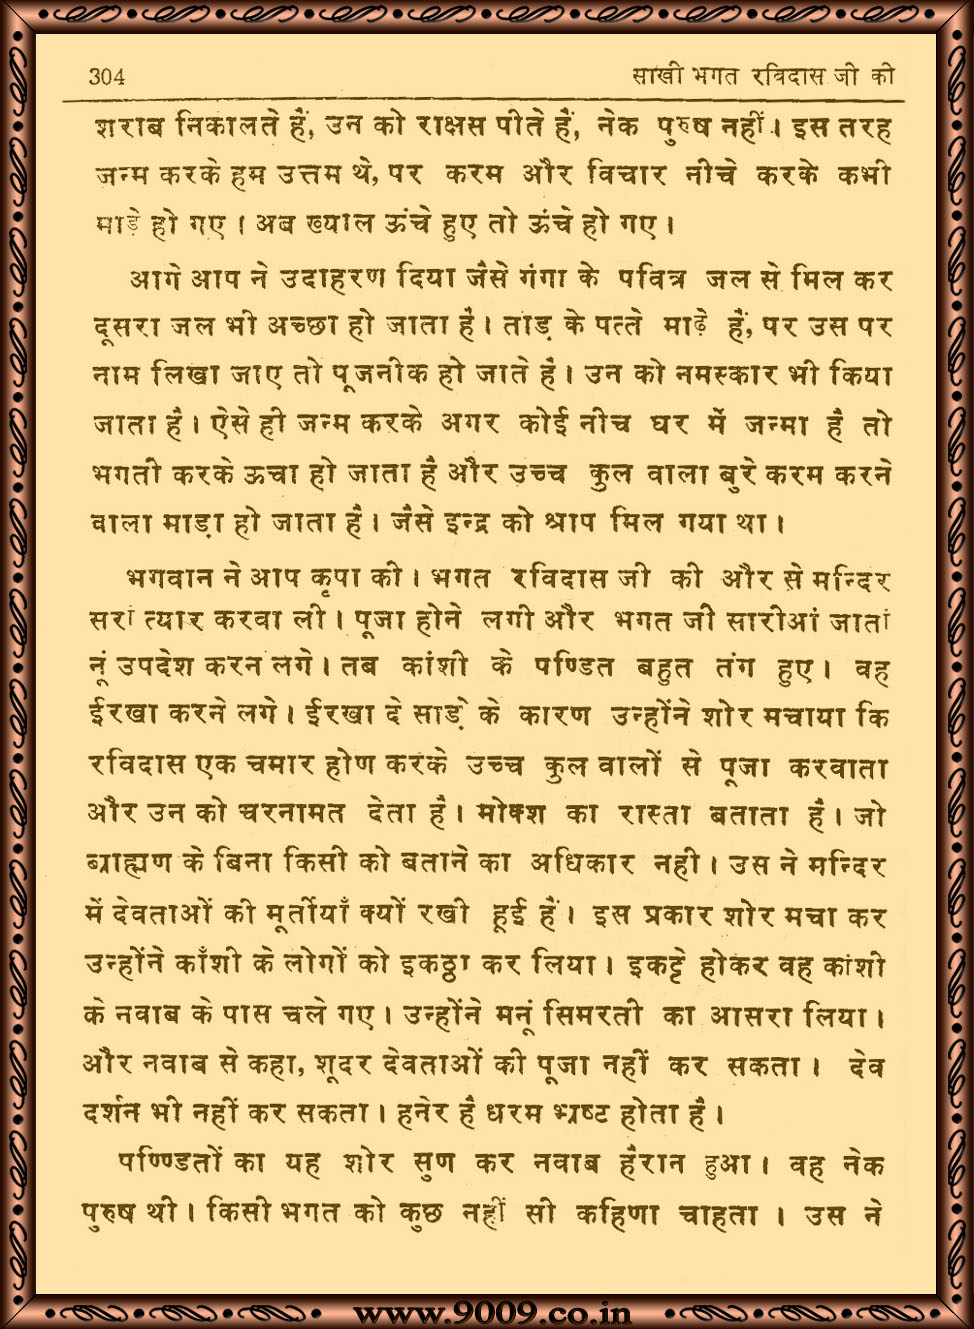 304 साखी भगत रविदास जी की
शराब निकालते हैं, उन को राक्षस पीते हैं, नेक पुरुष नहीं। इस तरह
जन्म करके हम उत्तम थे, पर करम और विचार नीचे करके कभी
माड़े हो गए। अब ख्याल ऊंचे हुए तो ऊंचे हो गए।
आगे आप ने उदाहरण दिया जैसे गंगा के पवित्र जल से मिल कर
दूसरा जल भी अच्छा हो जाता है। ताड़ के पत्ते माढ़े हैं, पर उस पर
नाम लिखा जाए तो पूजनीक हो जाते है। उन को नमस्कार भी किया
जाता है। ऐसे ही जन्म करके अगर कोई नीच घर में जन्मा है तो
भगती करके ऊचा हो जाता है और उच्च कुल वाला बुरे करम करने
वाला माड़ा हो जाता है। जैसे इन्द्र को श्राप मिल गया था।
भगवान ने आप कृपा की। भगत रविदास जी की और से मन्दिर
सरां त्यार करवा ली। पूजा होने लगी और भगत जी सारीआं जातां
नूं उपदेश करन लगे। तब कांशी के पण्डित बहुत तंग हुए। वह
ईरखा करने लगे। ईरखा दे साड़े के कारण उन्होंने शोर मचाया कि
रविदास एक चमार होण करके उच्च कुल वालों से पूजा करवाता
और उन को चरनामत देता है। मोक्श का रास्ता बताता है। जो
ब्राह्मण के बिना किसी को बताने का अधिकार नही। उस ने मन्दिर
में देवताओं की मूर्तीयाँ क्यों रखी हूई हैं। इस प्रकार शोर मचा कर
उन्होंने काँशी के लोगों को इकठ्ठा कर लिया। इकट्टे होकर वह कांशी
के नवाब के पास चले गए। उन्होंने मनूं सिमरती का आसरा लिया।
और नवाब से कहा, शूदर देवताओं की पूजा नहीं कर सकता। देव
दर्शन भी नहीं कर सकता। हनेर है धरम भ्रष्ट होता है।
पण्डितों का यह शोर सुण कर नवाब हैरान हुआ। वह नेक
पुरुष थी। किसी भगत को कुछ नहीं सी कहिणा चाहता । उस ने
www.9009.co.in